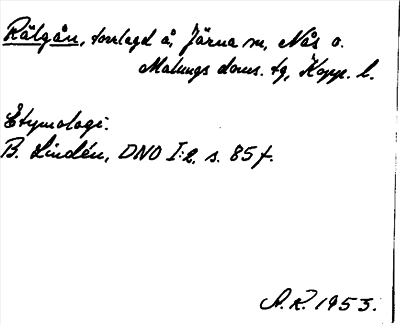 Rälgån, torrlagd å, Järna sn, Nås o.
Malungs doms. tg, Kopp. l.
Etymologi:
B. Lindén, DNO I:2, s. 85 f.
A.R. 1953.